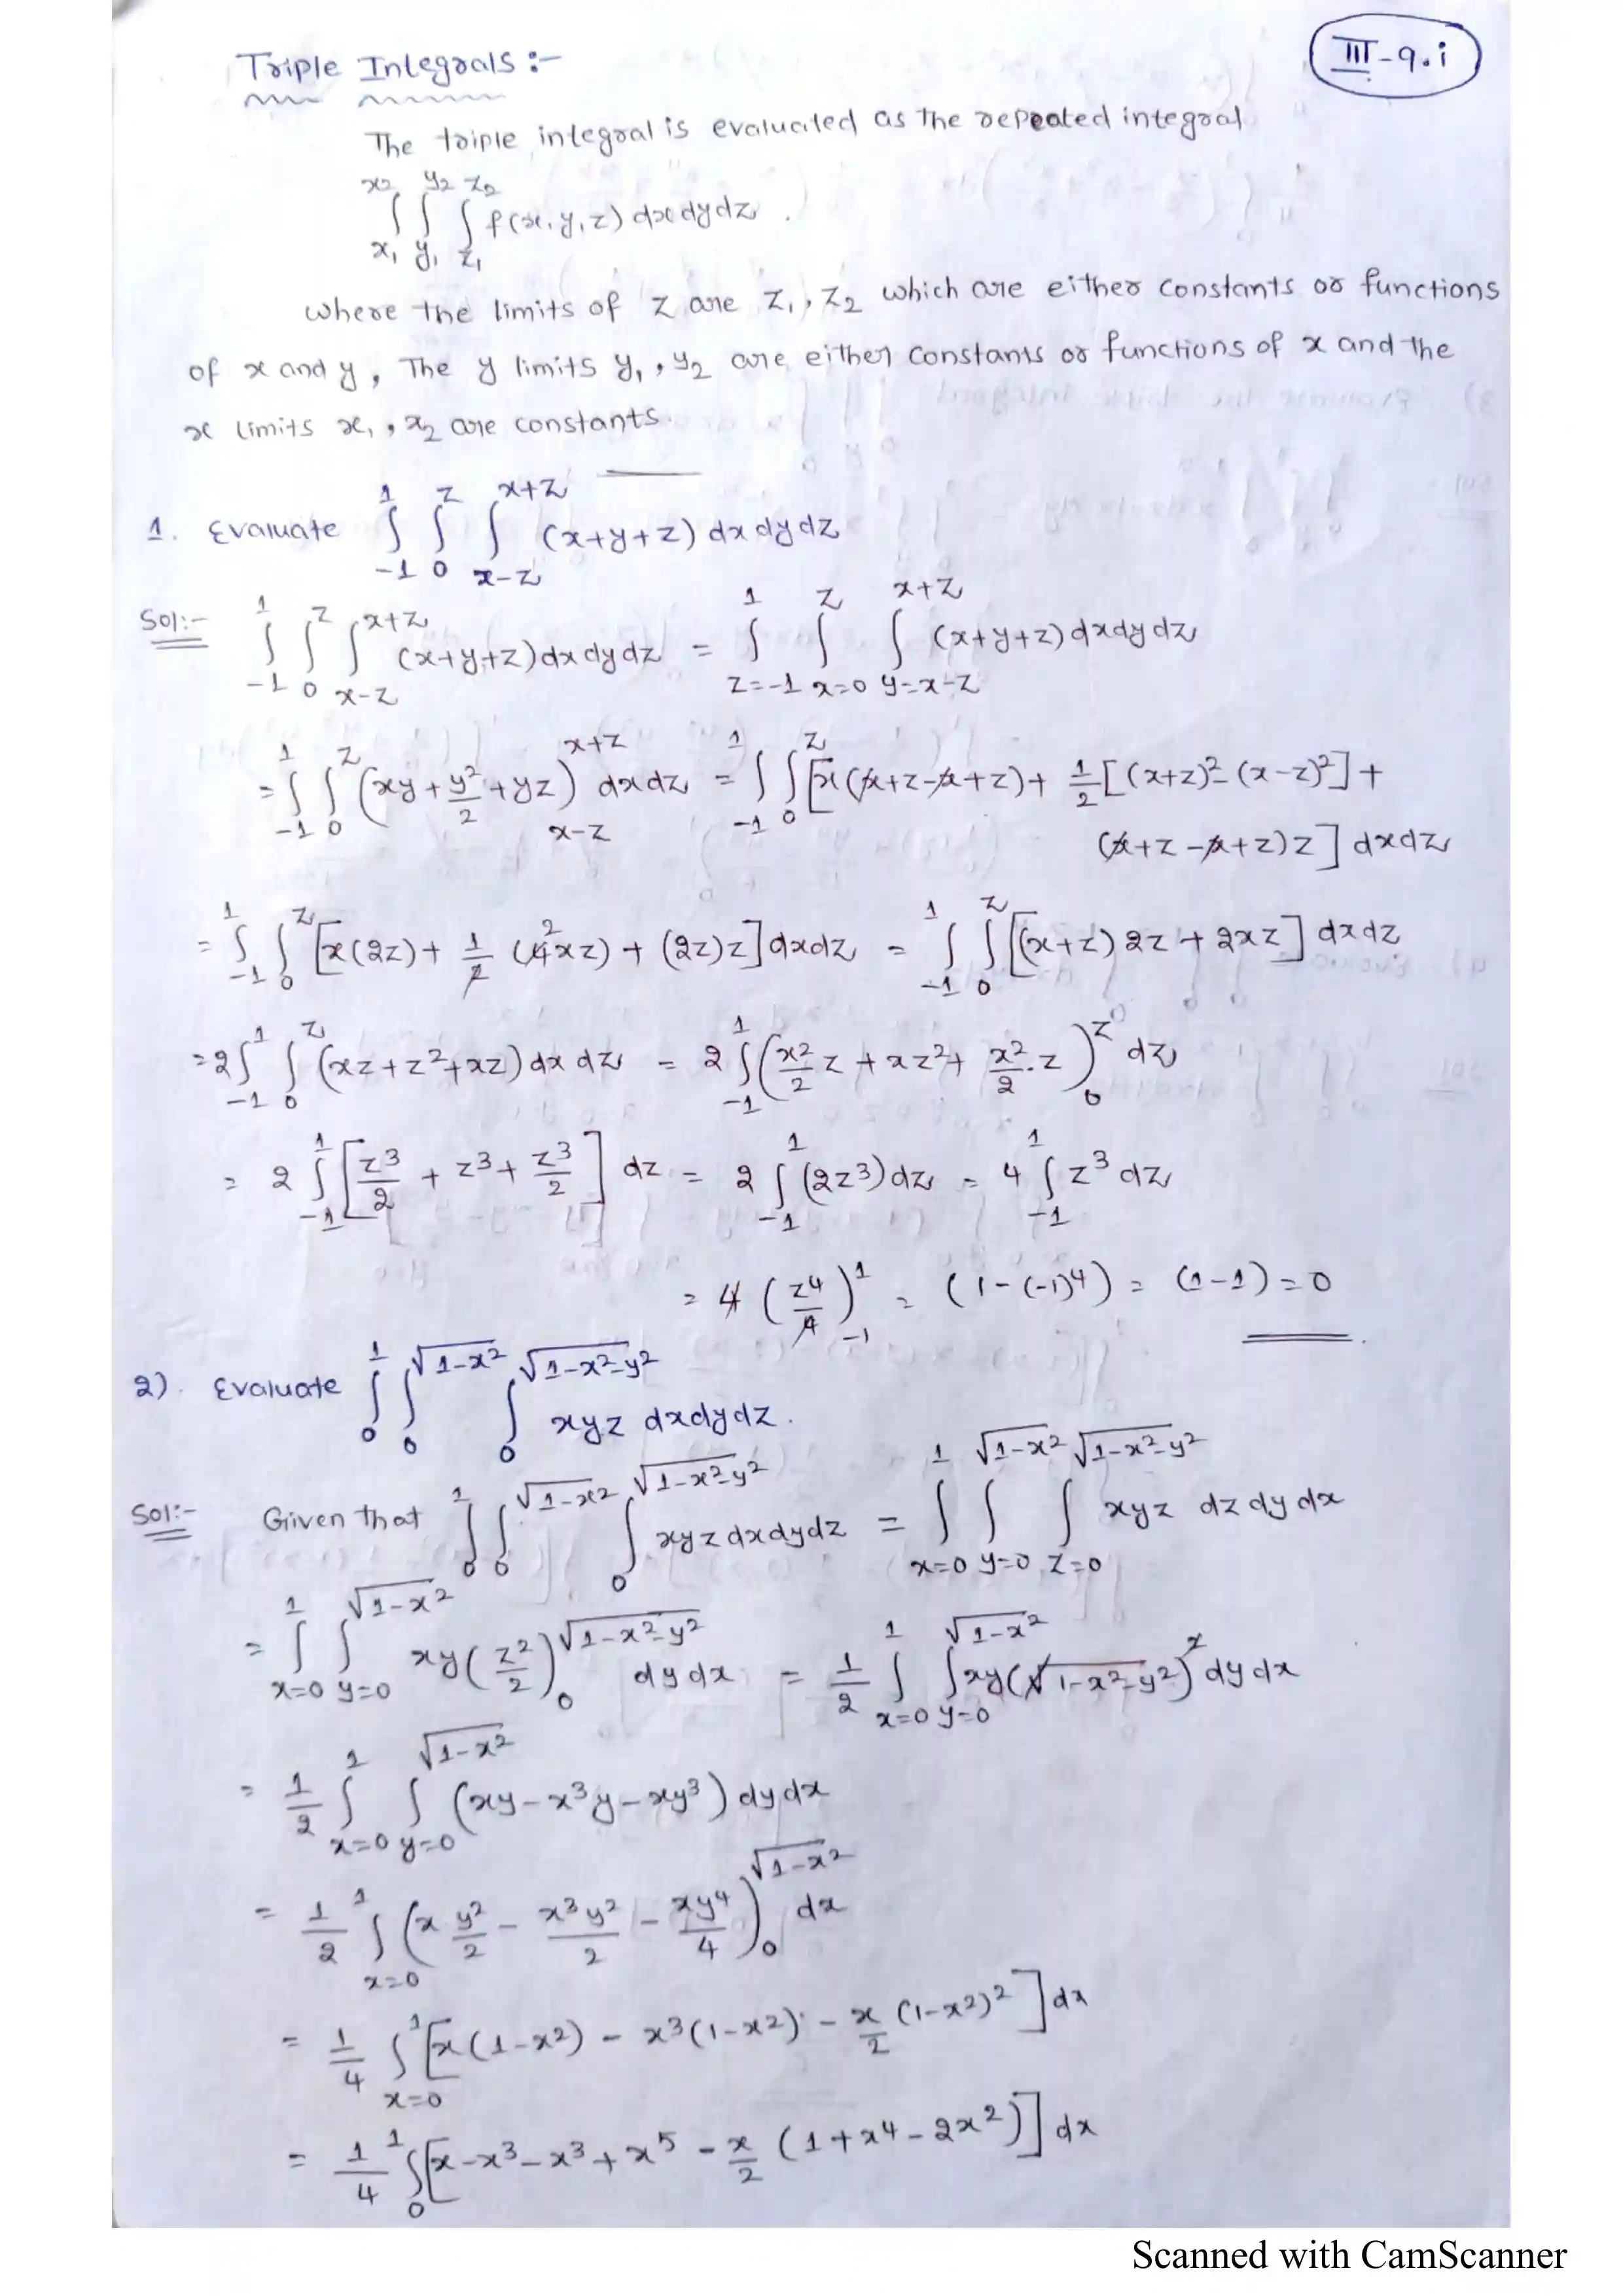 III-9.i
Triple Integrals :-
The triple integral is evaluated as the repeated integral
∫_{x₁}^{x₂} ∫_{y₁}^{y₂} ∫_{z₁}^{z₂} f(x,y,z) dx dy dz .
where the limits of z are z₁, z₂ which are either constants or functions
of x and y, The y limits y₁, y₂ are either constants or functions of x and the
x limits x₁, x₂ are constants.
1. Evaluate ∫_{-1}^{1} ∫_{0}^{z} ∫_{x-z}^{x+z} (x+y+z) dx dy dz
Sol:- ∫_{-1}^{1} ∫_{0}^{z} ∫_{x-z}^{x+z} (x+y+z) dx dy dz = ∫_{z=-1}^{1} ∫_{x=0}^{z} ∫_{y=x-z}^{x+z} (x+y+z) dx dy dz
= ∫_{-1}^{1} ∫_{0}^{z} (xy + y²/2 + yz)_{x-z}^{x+z} dx dz = ∫_{-1}^{1} ∫_{0}^{z} [x(x+z-x+z) + 1/2 [(x+z)² - (x-z)²] +
(x+z-x+z)z] dx dz
= ∫_{-1}^{1} ∫_{0}^{z} [x(2z) + 1/2 (4xz) + (2z)z] dx dz = ∫_{-1}^{1} ∫_{0}^{z} [(x+z)2z + 2xz] dx dz
= 2∫_{-1}^{1} ∫_{0}^{z} (xz + z² + xz) dx dz = 2∫_{-1}^{1} (x²/2 z + xz² + x²/2 . z)_{0}^{z} dz
= 2∫_{-1}^{1} [z³/2 + z³ + z³/2] dz = 2∫_{-1}^{1} (2z³) dz = 4∫_{-1}^{1} z³ dz
= 4 (z⁴/4)_{-1}^{1} = (1-(-1)⁴) = (1-1) = 0
2). Evaluate ∫_{0}^{1} ∫_{0}^{√(1-x²)} ∫_{0}^{√(1-x²-y²)} xyz dx dy dz.
Sol:- Given that ∫_{0}^{1} ∫_{0}^{√(1-x²)} ∫_{0}^{√(1-x²-y²)} xyz dx dy dz = ∫_{x=0}^{1} ∫_{y=0}^{√(1-x²)} ∫_{z=0}^{√(1-x²-y²)} xyz dz dy dx
= ∫_{x=0}^{1} ∫_{y=0}^{√(1-x²)} xy (z²/2)_{0}^{√(1-x²-y²)} dy dx = 1/2 ∫_{x=0}^{1} ∫_{y=0}^{√(1-x²)} xy(√(1-x²-y²))² dy dx
= 1/2 ∫_{x=0}^{1} ∫_{y=0}^{√(1-x²)} (xy - x³y - xy³) dy dx
= 1/2 ∫_{x=0}^{1} (x y²/2 - x³y²/2 - xy⁴/4)_{0}^{√(1-x²)} dx
= 1/4 ∫_{x=0}^{1} [x(1-x²) - x³(1-x²) - x/2 (1-x²)²] dx
= 1/4 ∫_{0}^{1} [x - x³ - x³ + x⁵ - x/2 (1 + x⁴ - 2x²)] dx
Scanned with CamScanner